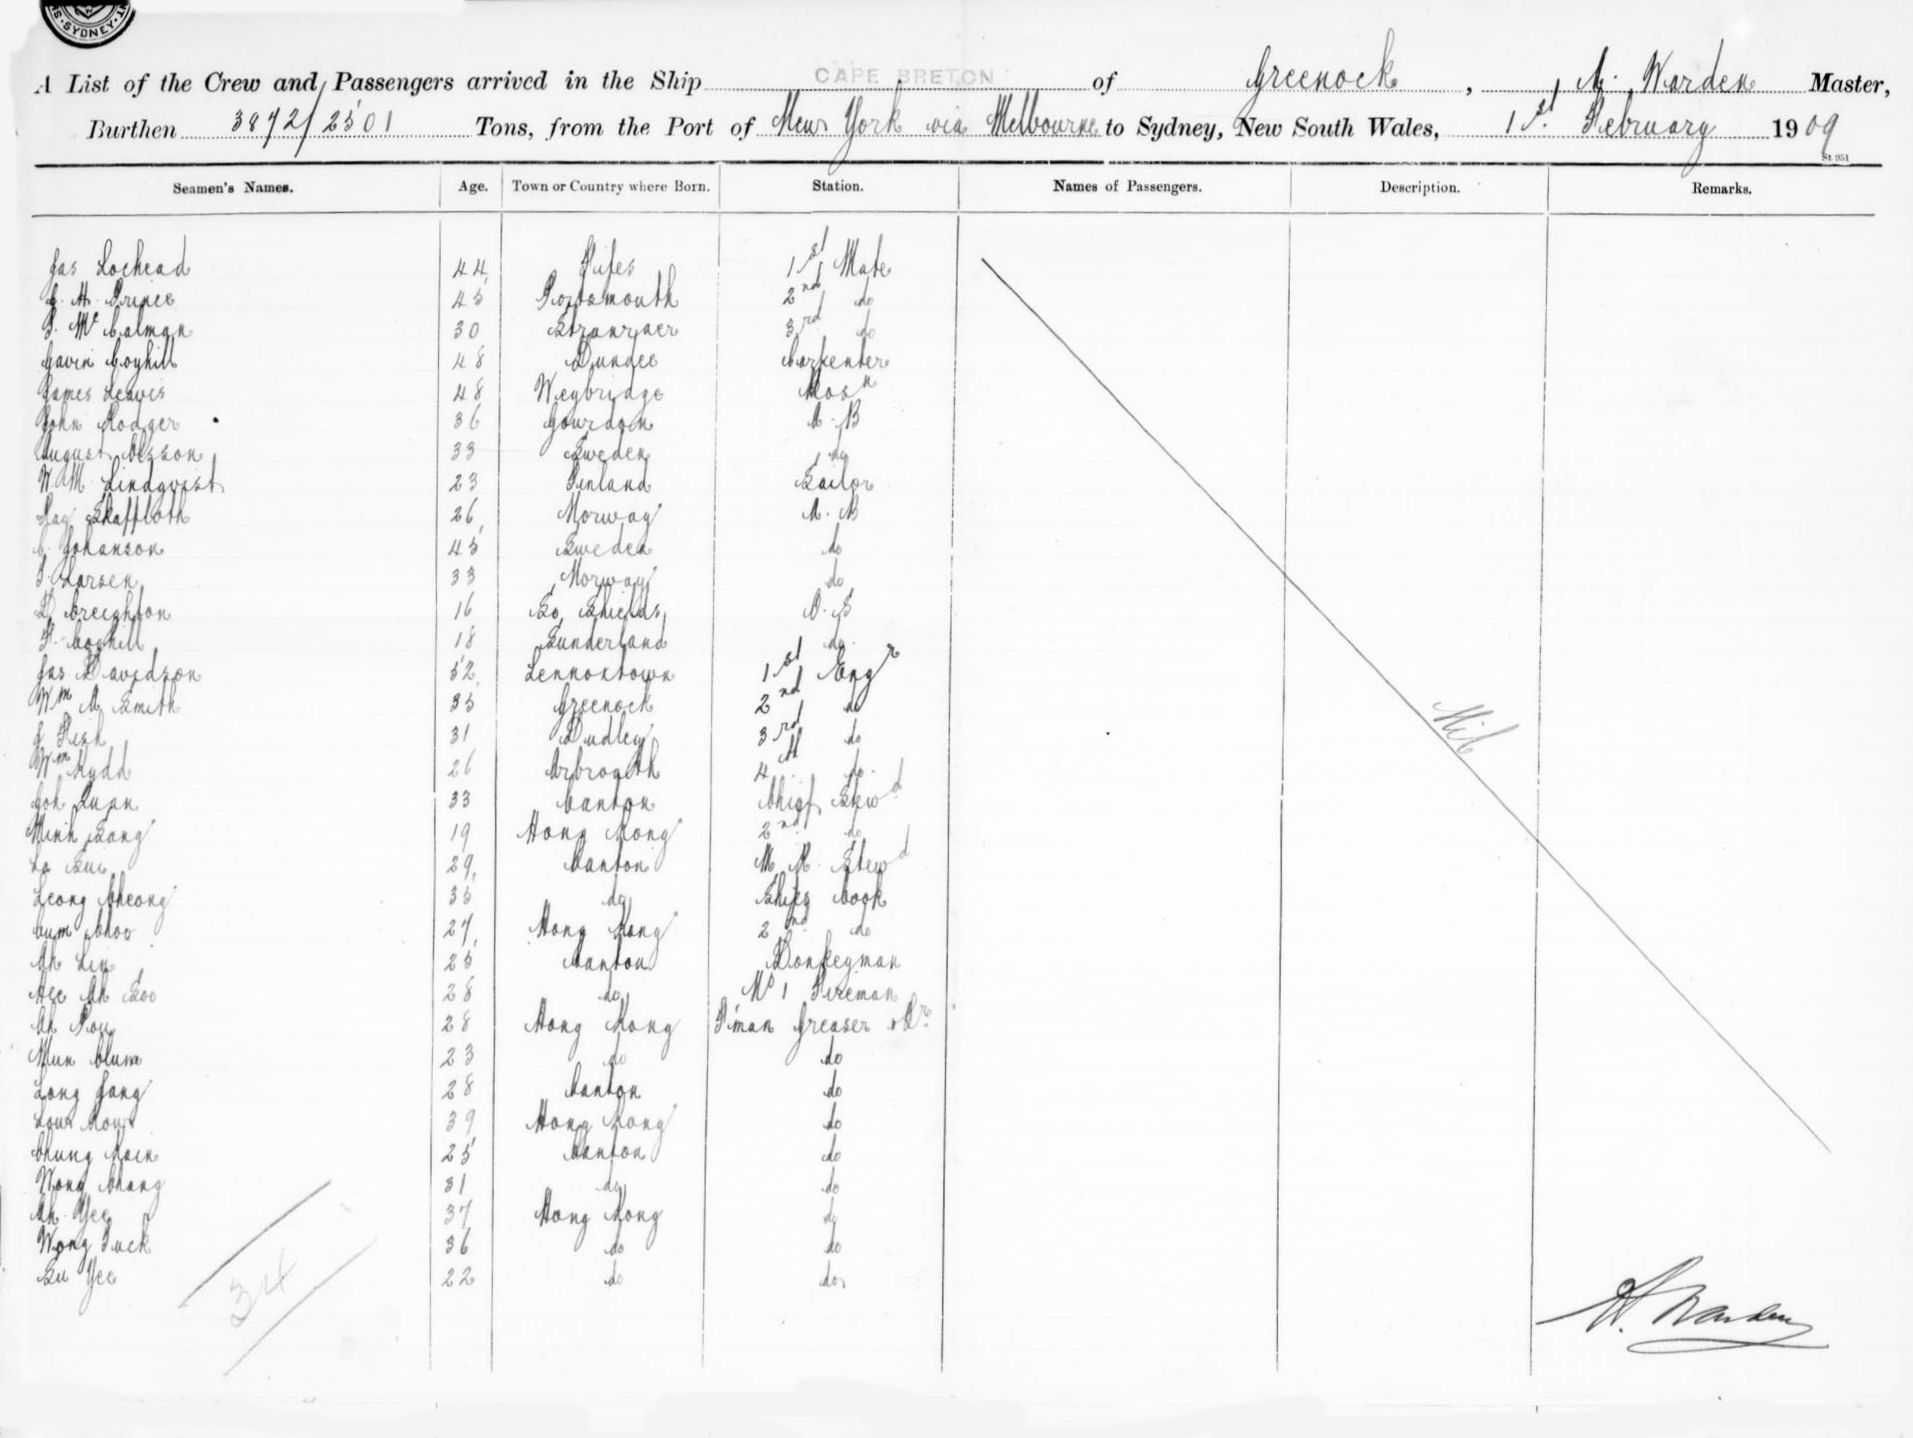 SYDNEY
A List of the Crew and Passengers arrived in the Ship CAPE BRETON of Greenock, A. Warden Master,
Burthen 3872/2501 Tons, from the Port of New York via Melbourne to Sydney, New South Wales, 1st February 1909
St 951
Seamen's Names. Age. Town or Country where Born. Station. Names of Passengers. Description. Remarks.
Jas Lochead 44 Fifes 1st Mate
G. H. Prince 45 Portsmouth 2nd do
P. McCalman 30 Stranraer 3rd do
Gavin Coghill 48 Dundee Carpenter
James Leavis 48 Weybridge Bosn
John Rodger 36 Gourdon A.B
August Olsson 33 Sweden do
W. M. Lindqvist 23 Finland Sailor
Skaffloth 26 Norway A.B
C. Johanson 45 Sweden do
Larsen 33 Norway do
Creighton 16 So Shields O.S
Coghill 18 Sunderland do
Jas Davidson 52 Lennoxtown 1st Engr
Wm A Smith 35 Greenock 2nd do
J Fish 31 Dudley 3rd do
Wm Kydd 26 Arbroath 4th do
Goh Luan 33 Canton Chief Stewd
Minh Sang 19 Hong Kong 2nd do
La Sui 29 Canton M. R. Stewd
Leong Cheong 35 do Ships Cook
Cum Choo 27 Hong Kong 2nd do
Ah Lin 25 Canton Donkeyman
Hee Ah Soo 28 do No 1 Fireman
Ah Pow 28 Hong Kong F'man Greaser &Tr.
Mun Clum 23 do do
Long Gang 28 Canton do
39 Hong Kong do
Chung Kain 25 Canton do
Wong Chang 31 do do
Ah Yee 37 Hong Kong do
Wong Tuck 36 do do
Su Yee 22 do do
Nil
34
A. Warden